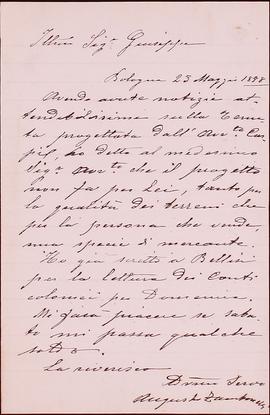 Ill.mo Sig.r Giuseppe
Bologna 23 Maggio 1898
Avendo avute notizie at-
tendibilissime sulla Tenu-
ta progettata dall' Avv.to
ho detto al medesimo
Sig.r Avv.to che il progetto
non fa per Lei, tanto per
la qualità dei terreni che
per la persona che vende,
una specie di mercante.
Ho già scritto a Bellini
per la lettura dei Conti
colonici per Domenica.
Mi farà piacere se saba-
to mi passa qualche
soldo.
La riverisco
Servo
Augusto